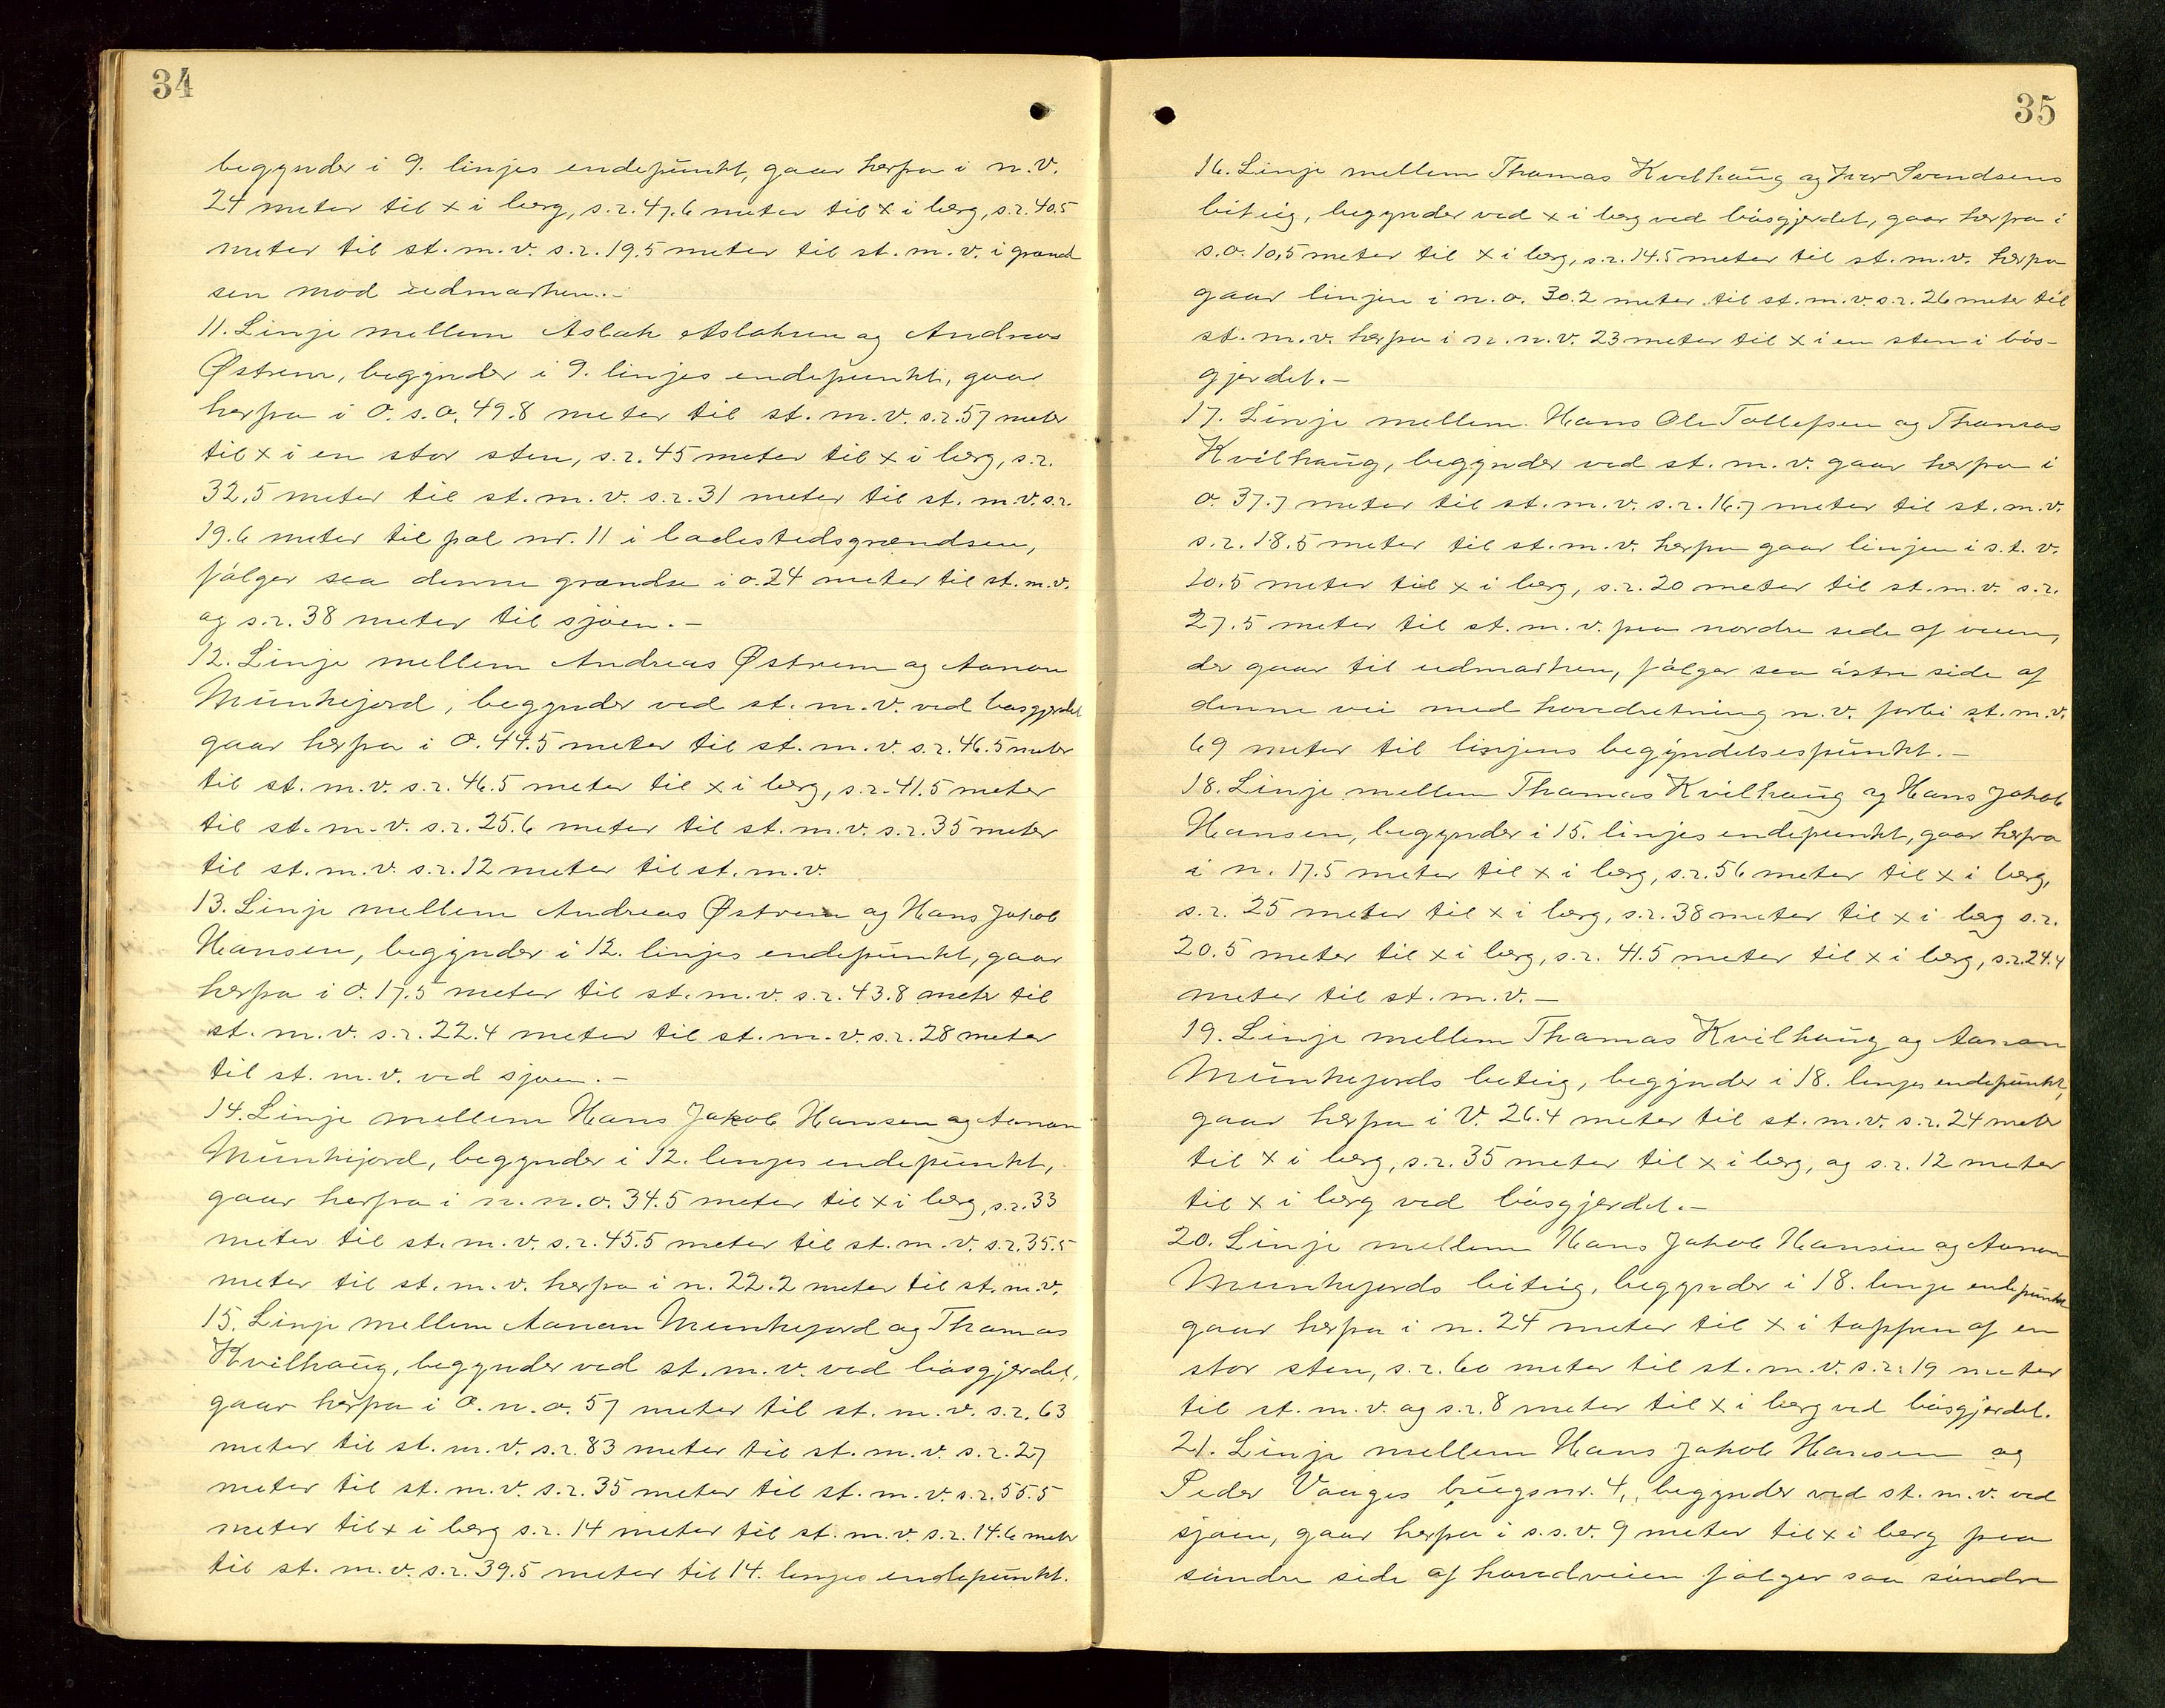 34
begynder i 9. linjes endepunkt, gaar herfra i n.v.
24 meter til x i berg, s.r. 47.6 meter til x i berg, s.r. 40.5
meter til st. m. v. s.r. 19.5 meter til st. m. v. i grænd
sen mod udmarken.-
11. Linje mellem Aslak Aslaksen og Andreas
Østrem, begynder i 9. linjes endepunkt, gaar
herfra i o.s.o. 49.8 meter til st. m. v. s.r. 57 meter
til x i en stor sten, s.r. 45 meter til x i berg, s.r.
32.5 meter til st. m. v. s.r. 31 meter til st. m. v. s.r.
19.6 meter til pæl nr. 11 i ladestedsgrændsen,
følger saa denne grændse i o. 24 meter til st. m. v.
og s.r. 38 meter til sjøen.-
12. Linje mellem Andreas Østrem og Aanon
Munkejord, begynder ved st. m. v. ved bøsgjerdet
gaar herfra i o. 44.5 meter til st. m. v. s.r. 46.5 meter
til st. m. v. s.r. 46.5 meter til x i berg, s.r. 41.5 meter
til st. m. v. s.r. 25.6 meter til st. m. v. s.r. 35 meter
til st. m. v. s.r. 12 meter til st. m. v.
13. Linje mellem Andreas Østrem og Hans Jakob
Hansen, begynder i 12. linjes endepunkt, gaar
herfra i o. 17.5 meter til st. m. v. s.r. 43.8 meter til
st. m. v. s.r. 22.4 meter til st. m. v. s.r. 28 meter
til st. m. v. ved sjøen.-
14. Linje mellem Hans Jakob Hansen og Aanon
Munkejord, begynder i 12. linjes endepunkt,
gaar herfra i n.n.o. 34.5 meter til x i berg, s.r. 33
meter til st. m. v. s.r. 45.5 meter til st. m. v. s.r. 35.5
meter til st. m. v. herfra i n. 22.2 meter til st. m. v.
15. Linje mellem Aanon Munkejord og Thomas
Kvilhaug, begynder ved st. m. v. ved bøsgjerdet,
gaar herfra i o.n.o. 57 meter til st. m. v. s.r. 63
meter til st. m. v. s.r. 83 meter til st. m. v. s.r. 27
meter til st. m. v. s.r. 35 meter til st. m. v. s.r. 55.5
meter til x i berg s.r. 14 meter til st. m. v. s.r. 14.6 meter
til st. m. v. s.r. 39.5 meter til 14. linjes endepunkt.
35
16. Linje mellem Thomas Kvilhaug og Iver Svendsens
biteig, begynder ved x i berg ved bøsgjerdet, gaar herfra i
s.o. 10,5 meter til x i berg, s.r. 14.5 meter til st. m. v. herfra
gaar linjen i n.o. 30.2 meter til st. m. v. s.r. 26 meter til
st. m. v. herfra i n.n.v. 23 meter til x i en sten i bøs-
gjerdet.-
17. Linje mellem Hans Ole Tollefsen og Thomas
Kvilhaug, begynder ved st. m. v. gaar herfra i
o. 37.7 meter til st. m. v. s.r. 16.7 meter til st. m. v.
s.r. 18.5 meter til st. m. v. herfra gaar linjen i s.t.v.
10.5 meter til x i berg, s.r. 20 meter til st. m. v. s.r.
27.5 meter til st. m. v. paa nordre side af veien,
der gaar til udmarken, følger saa østre side af
denne vei med hovedretning n.v. forbi st. m. v.
69 meter til linjens begyndelsespunkt.-
18. Linje mellem Thomas Kvilhaug og Hans Jakob
Hansen, begynder i 15. linjes endepunkt, gaar herfra
i n. 17.5 meter til x i berg, s.r. 56 meter til x i berg,
s.r. 25 meter til x i berg, s.r. 38 meter til x i berg s.r.
20.5 meter til x i berg, s.r. 41.5 meter til x i berg, s.r. 24.4
meter til st. m. v.-
19. Linje mellem Thomas Kvilhaug og Aanon
Munkejords beteig, begynder i 18. linjes endepunkt,
gaar herfra i v. 26.4 meter til st. m. v. s.r. 24 meter
til x i berg, s.r. 35 meter til x i berg, og s.r. 12 meter
til x i berg ved bøsgjerdet.-
20. Linje mellem Hans Jakob Hansen og Aanon
Munkejords biteig, begynder i 18. linje endepunkt
gaar herfra i n. 24 meter til x i toppen af en
stor sten, s.r. 60 meter til st. m. v. s.r. 19 meter
til st. m. v. og s.r. 8 meter til x i berg ved bøsgjerdet.
21. Linje mellem Hans Jakob Hansen og
Peder Vaages brugsnr. 4, begynder ved st. m. v. ved
sjøen, gaar herfra i s.s.v. 9 meter til x i berg paa
søndre side af hovedveien følger saa søndre